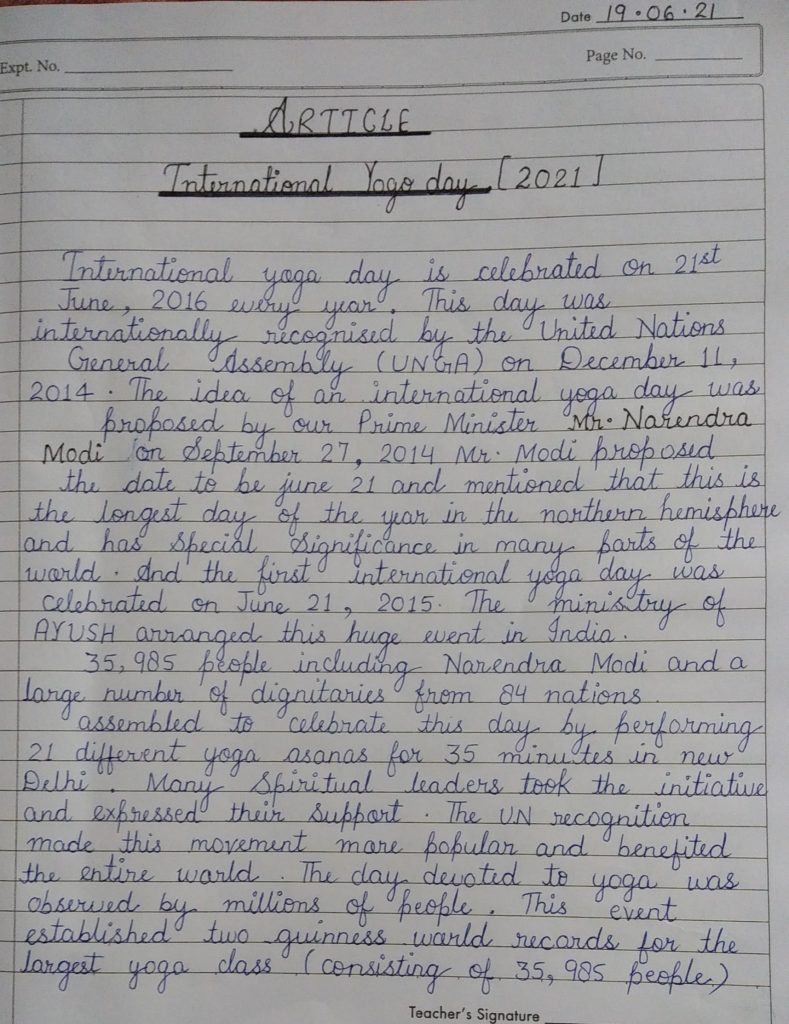 Date 19.06.21
Expt. No.
Page No.
ARTICLE
International Yoga day [2021]
International yoga day is celebrated on 21st
June, 2016 every year. This day was
internationally recognised by the United Nations
General Assembly (UNGA) on December 11,
2014. The idea of an international yoga day was
proposed by our Prime Minister Mr. Narendra
Modi on September 27, 2014 Mr. Modi proposed
the date to be june 21 and mentioned that this is
the longest day of the year in the northern hemisphere
and has special significance in many parts of the
world. And the first international yoga day was
celebrated on June 21, 2015. The ministry of
AYUSH arranged this huge event in India.
35,985 people including Narendra Modi and a
large number of dignitaries from 84 nations.
assembled to celebrate this day by performing
21 different yoga asanas for 35 minutes in new
Delhi. Many Spiritual leaders took the initiative
and expressed their support. The UN recognition
made this movement more popular and benefited
the entire world. The day devoted to yoga was
observed by millions of people. This event
established two guinness world records for the
largest yoga class (consisting of 35,985 people)
Teacher's Signature